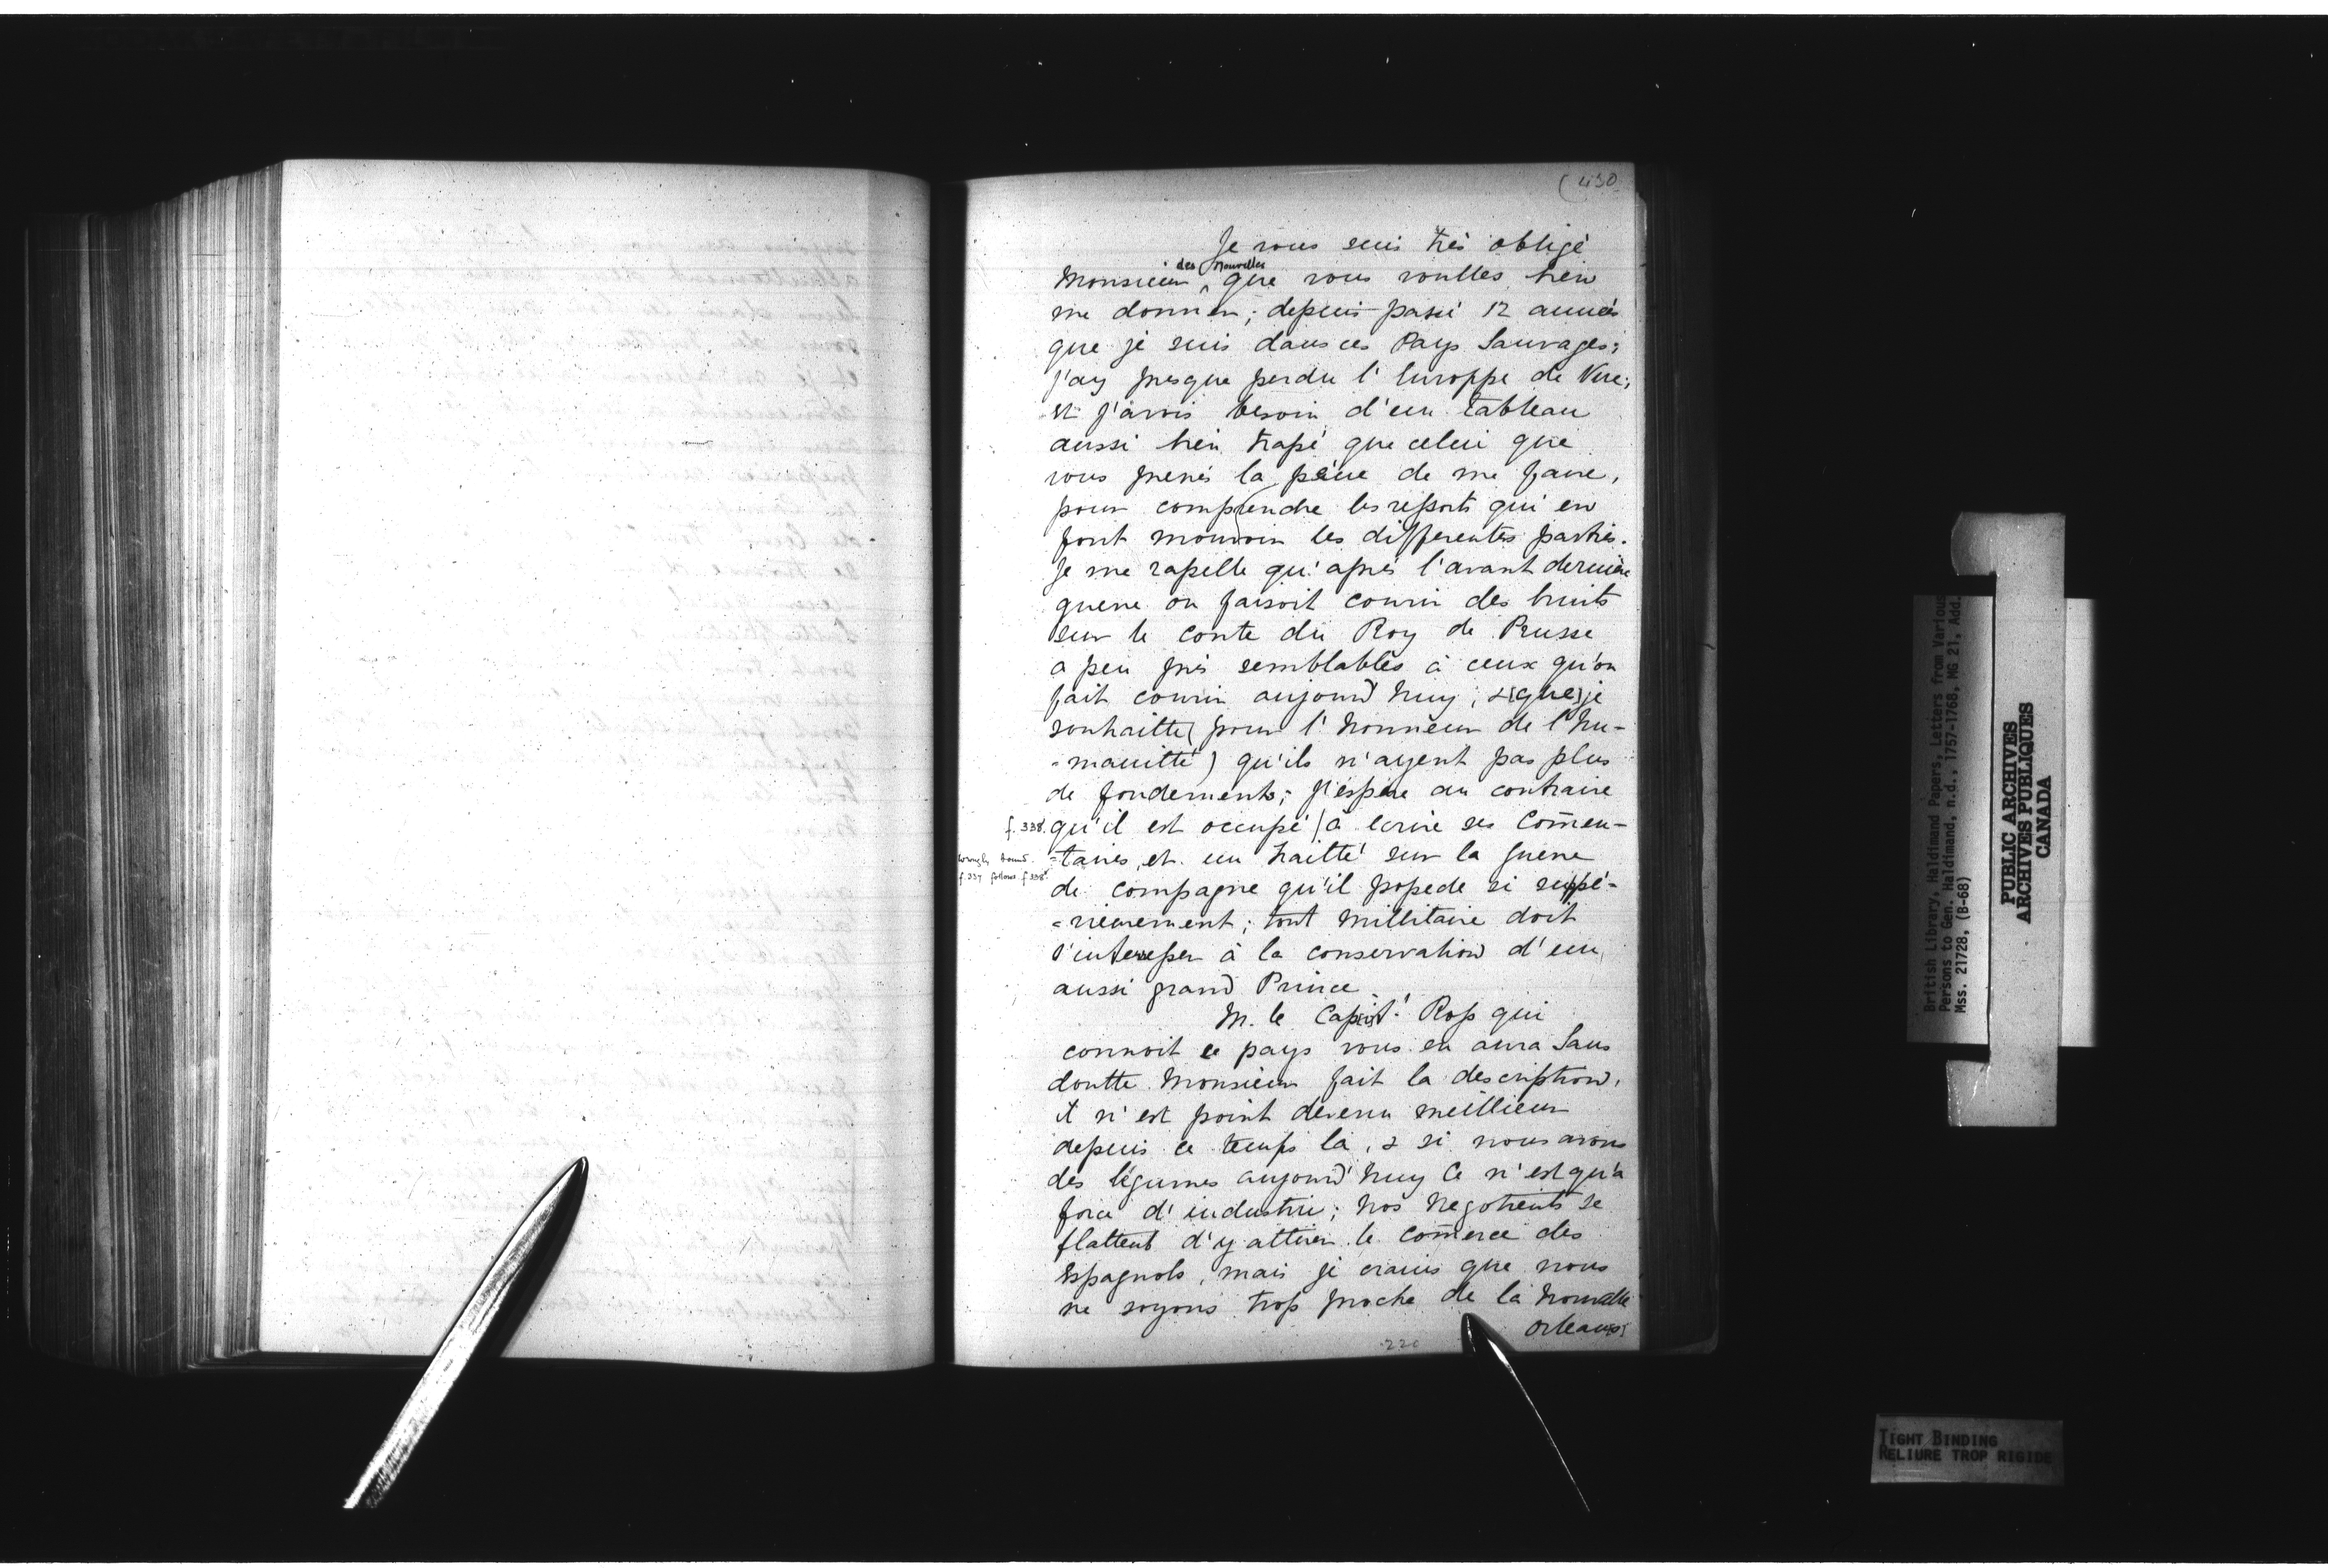 (430
Je vous suis très obligé
des Nouvelles
Monsieur ^ que vous voulles bien
me donner; depuis passé 12 années
que je suis dans ces Pays Sauvages;
j'ay presque perdu l'Europpe de Vue;
et j'avois besoin d'un tableau
aussi bien frapé que celui que
vous prenés la peine de me faire,
pour comprendre les ressorts qui en
font mouvoir les differentes parties.
Je me rapelle qu'après l'avant derniere
guerre on faisoit courir des bruits
sur le conte du Roy de Prusse
a peu près semblables à ceux qu'on
fait courir aujourd'huy; &[que]je
souhaitte (pour l'honneur de l'hu-
-manitté) qu'ils n'ayent pas plus
de fondements; j'espere au contraire
f. 338. qu'il est occupé /à ecrire ses Com̄en-
wrongly bound.
f. 337 follows f. 338.
=taires, et un traitté sur la guerre
de campagne qu'il possede si suppé-
=rieurement; tout millitaire doit
s'interesser à la conservation d'un
aussi grand Prince.
M. le Capit: Ross qui
connoit ce pays vous en aura Sans
doutte Monsieur fait la description,
il n'est point devenu meillieur
depuis ce temps la, & si nous avons
des légumes aujourd'huy Ce n'est qu'a
force d'industrie; nos Negotients se
flattent d'y attirer le com̄erce des
Espagnols, mais je crains que nous
ne soyons trop proche de la Nouvelle
Orleans
220
British Library, Haldimand Papers, Letters from Various
Persons to Gen. Haldimand, n.d., 1757-1768, MG 21, Add.
Mss. 21728, (B-68)
PUBLIC ARCHIVES
ARCHIVES PUBLIQUES
CANADA
TIGHT BINDING
RELIURE TROP RIGIDE